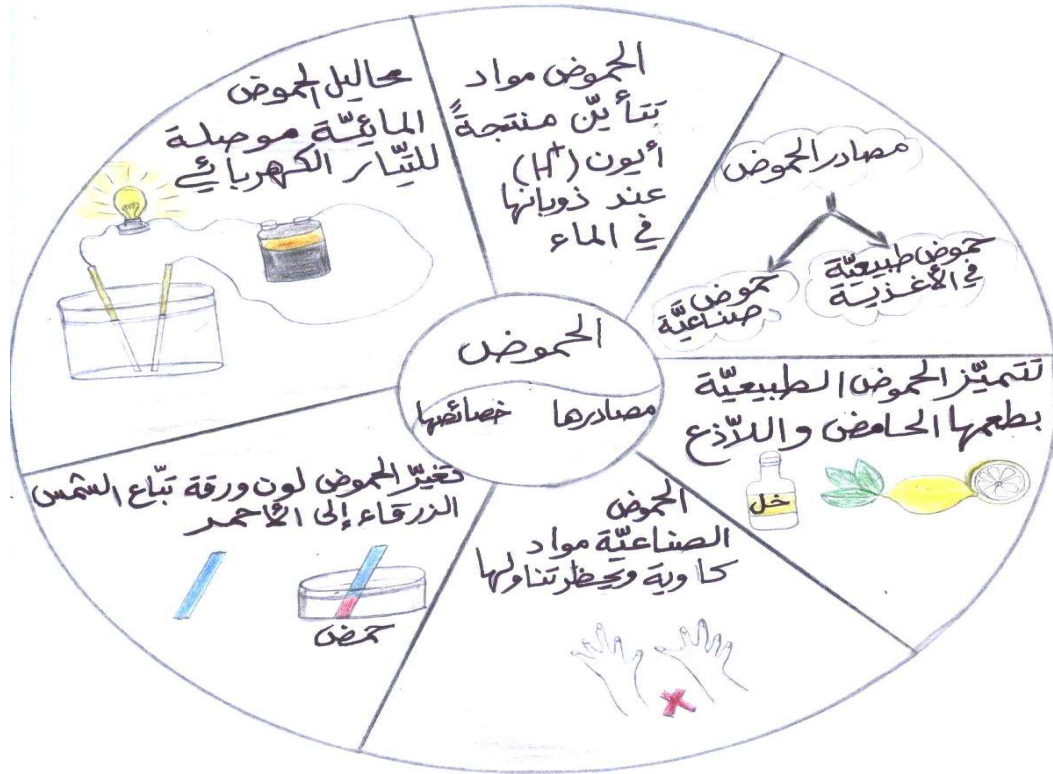 الحموض
مصادرها خصائصها
الحموض مواد
تتأيّن منتجةً
أيون (H⁺)
عند ذوبانها
في الماء
مصادر الحموض
حموض طبيعيّة
في الأغذيـة
حموض
صناعيّة
تتميّز الحموض الطبيعيّة
بطعمها الحامض واللاّذع
خل
الحموض
الصناعيّة مواد
كاوية ويحظر تناولها
تغيّر الحموض لون ورقة تبّاع الشمس
الزرقاء إلى الأحمر
حمض
محاليل الحموض
المائيّـة موصلـة
للتيّار الكهربائي